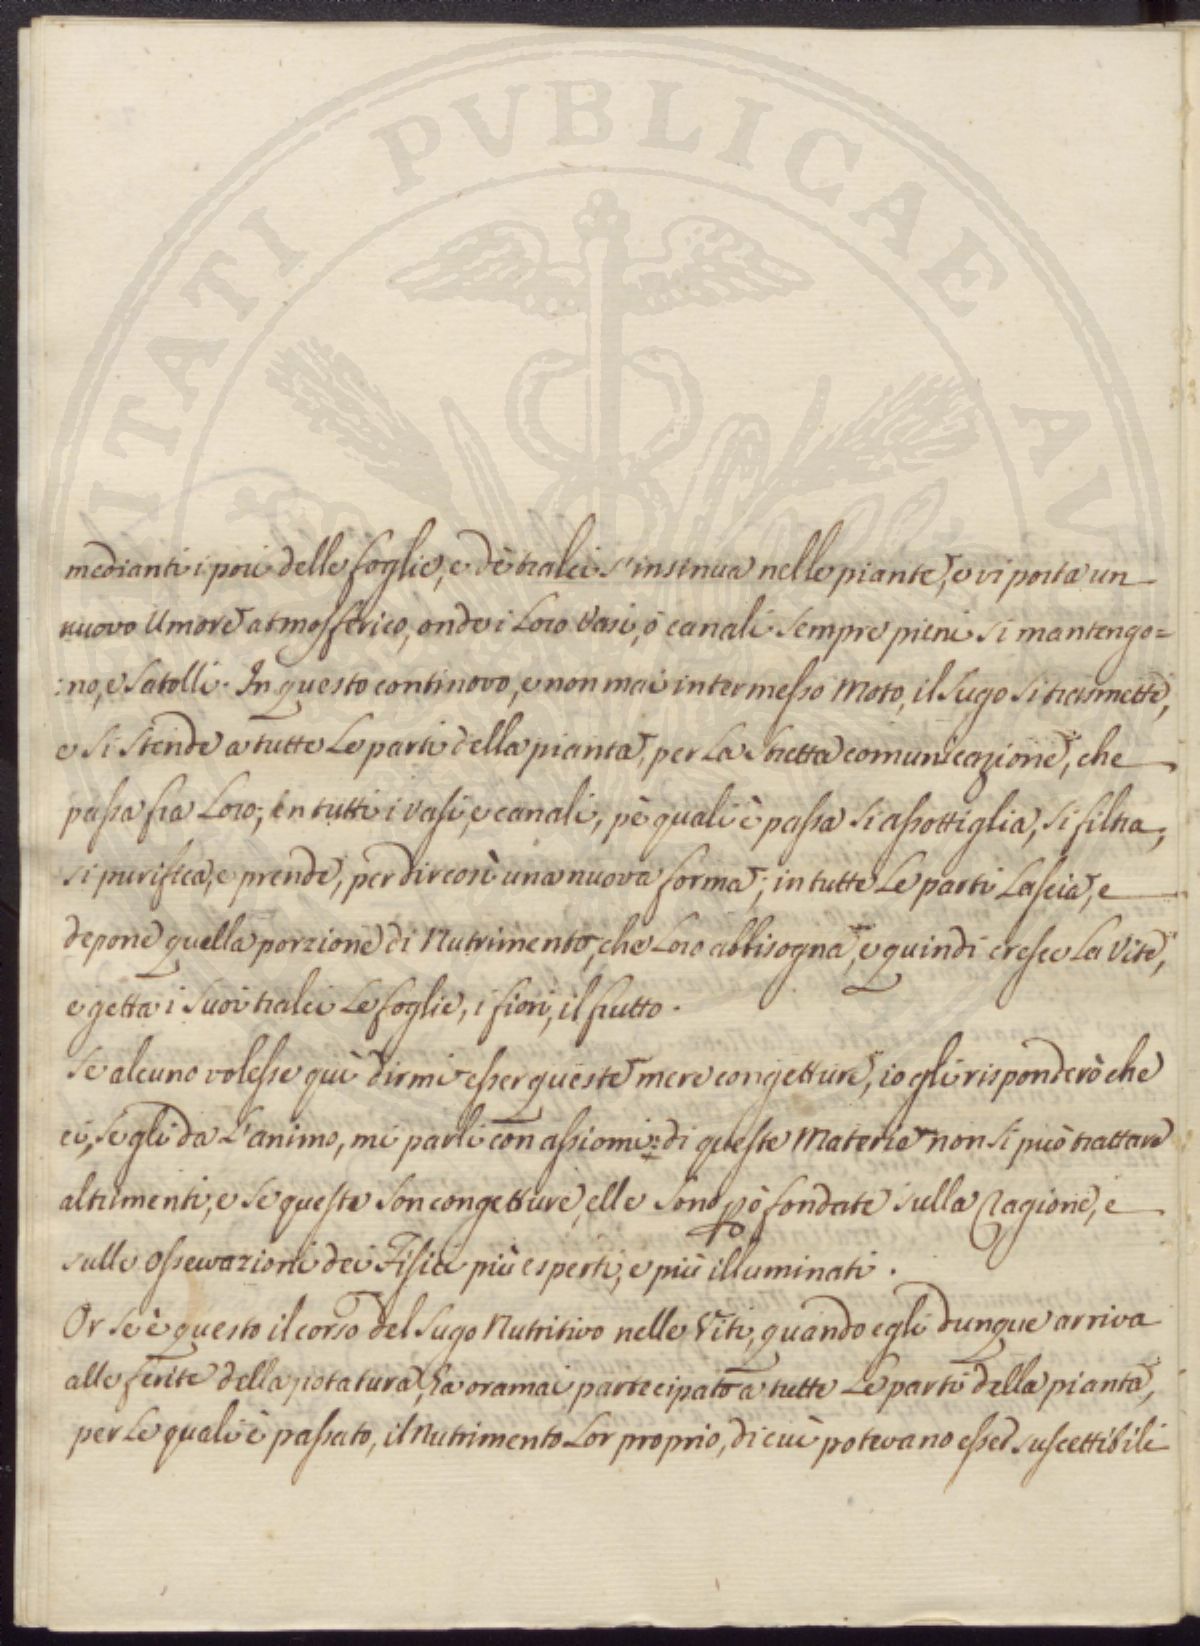 ITATI PVBLICAE AV
medianti i pori delle foglie, e de' tralci s'insinua nelle piante, e vi porta un
nuovo Umore atmosferico, onde i Loro Vasi, ò canali sempre pieni si mantengo=
:no, e Satolli. In questo continovo, e non mai intermesso Moto, il Sugo si trasmette,
e si stende a tutte Le parti della pianta, per La stretta comunicazione, che
passa fra Loro; in tutti i vasi, e canali, pe' quali è passa si assottiglia, si filtra,
si purifica, e prende, per dir così una nuova forma; in tutte Le parti Lascia, e
depone quella porzione di Nutrimento, che Loro abbisogna, e quindi cresce La Vite,
e getta i suoi tralci Le foglie, i fiori, il frutto.
Se alcuno volesse quì dirmi esser queste mere congetture, io gli risponderò che
ei, se gli da L'animo, mi parli con assiomi: di queste Materie non si può trattare
altrimenti, e se queste son congetture, elle sono pò fondate sulla Ragione, e
sulle Osservazioni dei Fisici più esperti, e più illuminati.
Or se è questo il corso del Sugo Nutritivo nelle Viti, quando egli dunque arriva
alle ferite della potatura, ha oramai partecipato a tutte Le parti della pianta,
per Le quali è passato, il Nutrimento Lor proprio, di cui potevano esser suscettibili